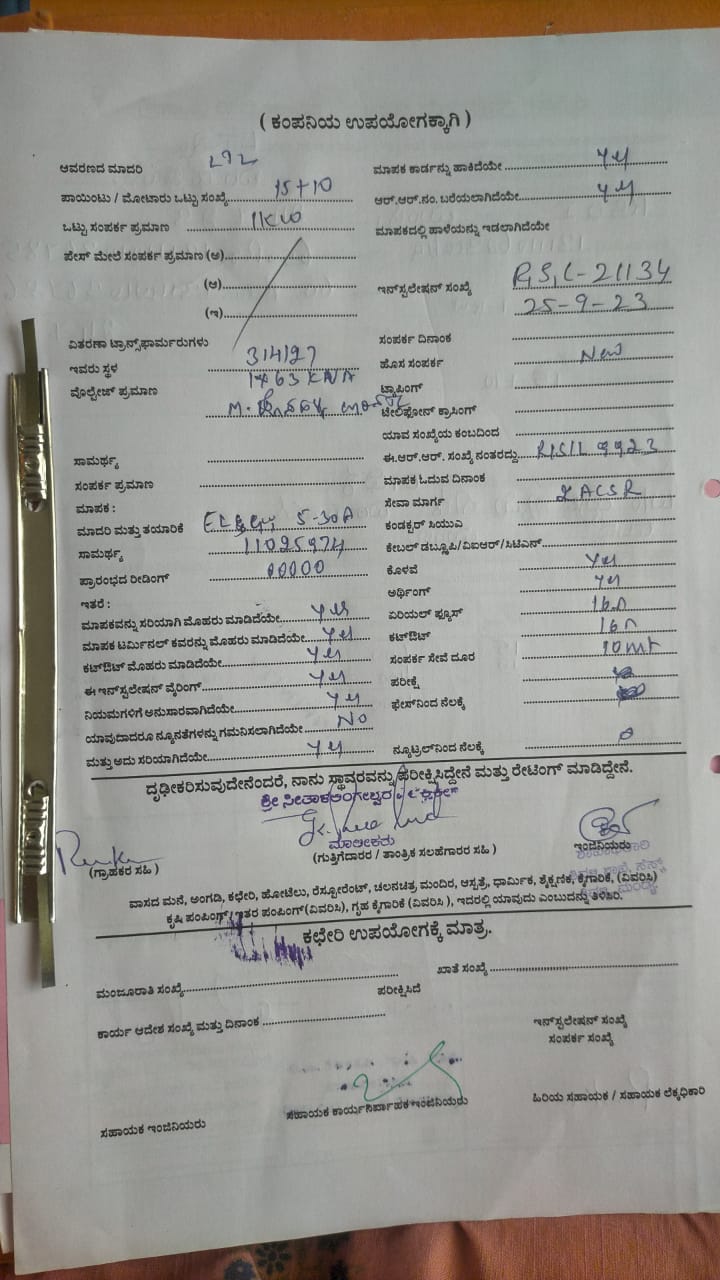 ( ಕಂಪನಿಯ ಉಪಯೋಗಕ್ಕಾಗಿ )
ಆವರಣದ ಮಾದರಿ
ಮಾಪಕ ಕಾರ್ಡನ್ನು ಹಾಕಿದೆಯೇ
ಪಾಯಿಂಟು / ಮೋಟಾರು ಒಟ್ಟು ಸಂಖ್ಯೆ 15+10
ಆರ್.ಆರ್.ನಂ. ಬರೆಯಲಾಗಿದೆಯೇ
ಒಟ್ಟು ಸಂಪರ್ಕ ಪ್ರಮಾಣ 1KW
ಮಾಪಕದಲ್ಲಿ ಹಾಳೆಯನ್ನು ಇಡಲಾಗಿದೆಯೇ
ಪೇಸ್ ಮೇಲೆ ಸಂಪರ್ಕ ಪ್ರಮಾಣ (ಅ)
(ಆ)
(ಇ)
ಇನ್‌ಸ್ಟಲೇಷನ್ ಸಂಖ್ಯೆ 21134
25-9-23
ವಿತರಣಾ ಟ್ರಾನ್ಸ್‌ಫಾರ್ಮರುಗಳು
ಸಂಪರ್ಕ ದಿನಾಂಕ
ಇವರು ಸ್ಥಳ 314127
ಹೊಸ ಸಂಪರ್ಕ New
ವೊಲ್ಟೇಜ್ ಪ್ರಮಾಣ 63 KVA
ಟ್ಯಾಪಿಂಗ್
ಟೆಲಿಫೋನ್ ಕ್ರಾಸಿಂಗ್
ಯಾವ ಸಂಖ್ಯೆಯ ಕಂಬದಿಂದ
ಸಾಮರ್ಥ್ಯ
ಈ.ಆರ್.ಆರ್. ಸಂಖ್ಯೆ ನಂತರದ್ದು 9923
ಸಂಪರ್ಕ ಪ್ರಮಾಣ
ಮಾಪಕ ಓದುವ ದಿನಾಂಕ
ಮಾಪಕ :
ಸೇವಾ ಮಾರ್ಗ ACSR
ಮಾದರಿ ಮತ್ತು ತಯಾರಿಕೆ 5-30A
ಕಂಡಕ್ಟರ್ ಸಿಯುಎ
ಸಾಮರ್ಥ್ಯ 11025974
ಕೇಬಲ್ ಡಬ್ಲೂಪಿ/ವಿಐಆರ್/ಸಿಟಿಎಸ್
ಪ್ರಾರಂಭದ ರೀಡಿಂಗ್ 00000
ಕೊಳವೆ Yes
ಇತರೆ :
ಅರ್ಥಿಂಗ್ Yes
ಮಾಪಕವನ್ನು ಸರಿಯಾಗಿ ಮೊಹರು ಮಾಡಿದೆಯೇ Yes
ಏರಿಯಲ್ ಫ್ಯೂಸ್ 16A
ಮಾಪಕ ಟರ್ಮಿನಲ್ ಕವರನ್ನು ಮೊಹರು ಮಾಡಿದೆಯೇ Yes
ಕಟ್ಔಟ್ 16A
ಕಟ್ಔಟ್ ಮೊಹರು ಮಾಡಿದೆಯೇ Yes
ಸಂಪರ್ಕ ಸೇವೆ ದೂರ 10mt
ಈ ಇನ್‌ಸ್ಟಲೇಷನ್ ವೈರಿಂಗ್ Yes
ಪರೀಕ್ಷೆ
ನಿಯಮಗಳಿಗೆ ಅನುಸಾರವಾಗಿದೆಯೇ Yes
ಫೇಸ್‌ನಿಂದ ನೆಲಕ್ಕೆ
ಯಾವುದಾದರೂ ನ್ಯೂನತೆಗಳನ್ನು ಗಮನಿಸಲಾಗಿದೆಯೇ No
ಮತ್ತು ಅದು ಸರಿಯಾಗಿದೆಯೇ Yes
ನ್ಯೂಟ್ರಲ್‌ನಿಂದ ನೆಲಕ್ಕೆ 0
ದೃಢೀಕರಿಸುವುದೇನೆಂದರೆ, ನಾನು ಸ್ಥಾವರವನ್ನು ಪರೀಕ್ಷಿಸಿದ್ದೇನೆ ಮತ್ತು ರೇಟಿಂಗ್ ಮಾಡಿದ್ದೇನೆ.
ಶ್ರೀ
ಮಾಲೀಕರು
(ಗ್ರಾಹಕರ ಸಹಿ )
(ಗುತ್ತಿಗೆದಾರರ / ತಾಂತ್ರಿಕ ಸಲಹೆಗಾರರ ಸಹಿ )
ಇಂಜಿನಿಯರು
ಶಾಖಾಧಿಕಾರಿ
ವಾಸದ ಮನೆ, ಅಂಗಡಿ, ಕಛೇರಿ, ಹೋಟೆಲು, ರೆಸ್ಟೋರೆಂಟ್, ಚಲನಚಿತ್ರ ಮಂದಿರ, ಆಸ್ಪತ್ರೆ, ಧಾರ್ಮಿಕ, ಶೈಕ್ಷಣಿಕ, ಕೈಗಾರಿಕೆ, (ವಿವರಿಸಿ)
ಕೃಷಿ ಪಂಪಿಂಗ್ / ಇತರ ಪಂಪಿಂಗ್(ವಿವರಿಸಿ), ಗೃಹ ಕೈಗಾರಿಕೆ (ವಿವರಿಸಿ ), ಇದರಲ್ಲಿ ಯಾವುದು ಎಂಬುದನ್ನು ತಿಳಿಸಿರಿ.
ಕಛೇರಿ ಉಪಯೋಗಕ್ಕೆ ಮಾತ್ರ.
ಮಂಜೂರಾತಿ ಸಂಖ್ಯೆ
ಖಾತೆ ಸಂಖ್ಯೆ
ಪರೀಕ್ಷಿಸಿದೆ
ಕಾರ್ಯ ಆದೇಶ ಸಂಖ್ಯೆ ಮತ್ತು ದಿನಾಂಕ
ಇನ್‌ಸ್ಟಲೇಷನ್ ಸಂಖ್ಯೆ
ಸಂಪರ್ಕ ಸಂಖ್ಯೆ
ಸಹಾಯಕ ಇಂಜಿನಿಯರು
ಸಹಾಯಕ ಕಾರ್ಯನಿರ್ವಾಹಕ ಇಂಜಿನಿಯರು
ಹಿರಿಯ ಸಹಾಯಕ / ಸಹಾಯಕ ಲೆಕ್ಕಧಿಕಾರಿ